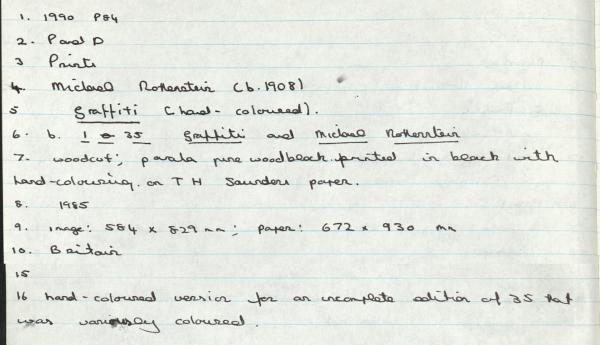 1. 1990 P84
2. P and D
3 Prints
4. Michael Rothenstein (b. 1908)
5 graffiti (hand-coloured).
6. b. 1 35 graffiti and Michael Rothenstein
7. woodcut; parala pine woodblock printed in black with
hand-colouring. on T H Saunders paper.
8. 1985
9. image: 584 x 829 mm; paper: 672 x 930 mm
10. Britain
15
16 hand-coloured version for an incomplete edition of 35 that
was variously coloured.